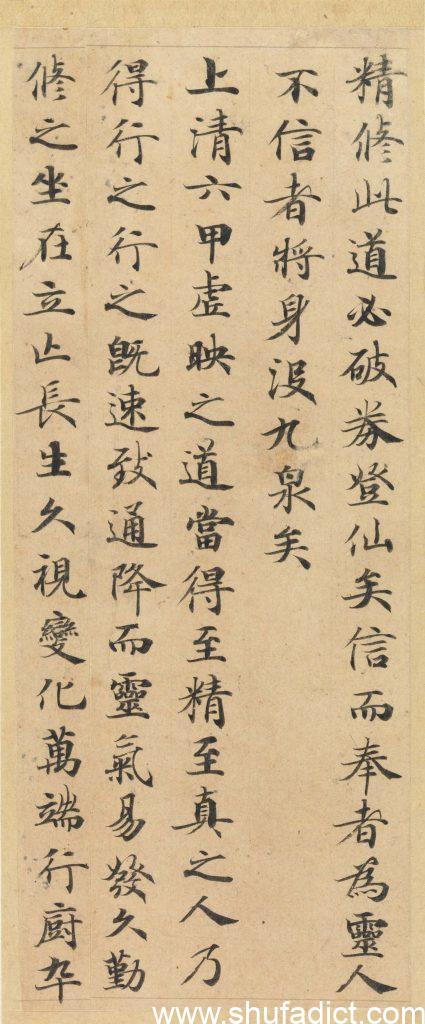 精修此道必破券登仙矣信而奉者為靈人
不信者將身没九泉矣
上清六甲虚映之道當得至精至真之人乃
得行之行之既速致通降而靈氣易發久勤
修之坐在立亡長生久視變化萬端行廚卒
www.shufadict.com